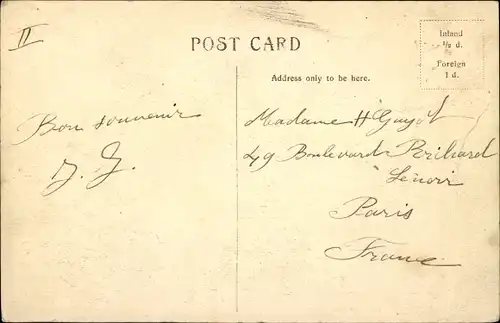 II
POST CARD
Inland
½ d.
Foreign
1 d.
Address only to be here.
Bon souvenir
J. G.
Madame H Guyot
49 Boulevard Richard
Lenoir
Paris
France